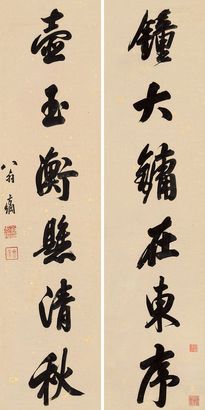 鐘大鏞在東序
壺玉衡懸清秋
八翁方綱